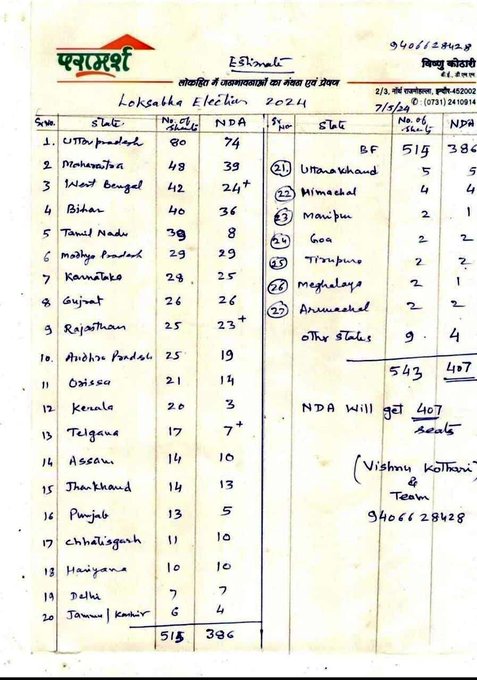 9406628428
परामर्श
Estimate
विष्णु कोठारी
बी.ई., डी.एम.एम.
लोकहित में जनभावनाओं का मंथन एवं प्रेषण
2/3, नॉर्थ राजमोहल्ला, इन्दौर-452002
Loksabha Election 2024
7/5/24
✆ : (0731) 2410914
Sr.No. State No. of Sheats NDA
1. Uttar pradesh 80 74
2 Maharastra 48 39
3 West Bengal 42 24+
4 Bihar 40 36
5 Tamil Nadu 39 8
6 Madhya Pradesh 29 29
7 Karnataka 28 25
8 Gujrat 26 26
9 Rajasthan 25 23+
10. Andhra Pradesh 25 19
11 Orissa 21 14
12 Kerala 20 3
13 Telgana 17 7+
14 Assam 14 10
15 Jharkhand 14 13
16 Punjab 13 5
17 Chhatisgarh 11 10
18 Hariyana 10 10
19 Delhi 7 7
20 Jammu/Kashir 6 4
515 386
Sr No State No. of Sheats NDA
BF 515 386
21. Uttarakhand 5 5
22 Himachal 4 4
23 Manipur 2 1
24 Goa 2 2
25 Tirupura 2 2
26 Meghalaya 2 1
27 Arunachal 2 2
othr States 9 4
543 407
NDA Will get 407
seats
(Vishnu Kothari)
&
Team
9406628428